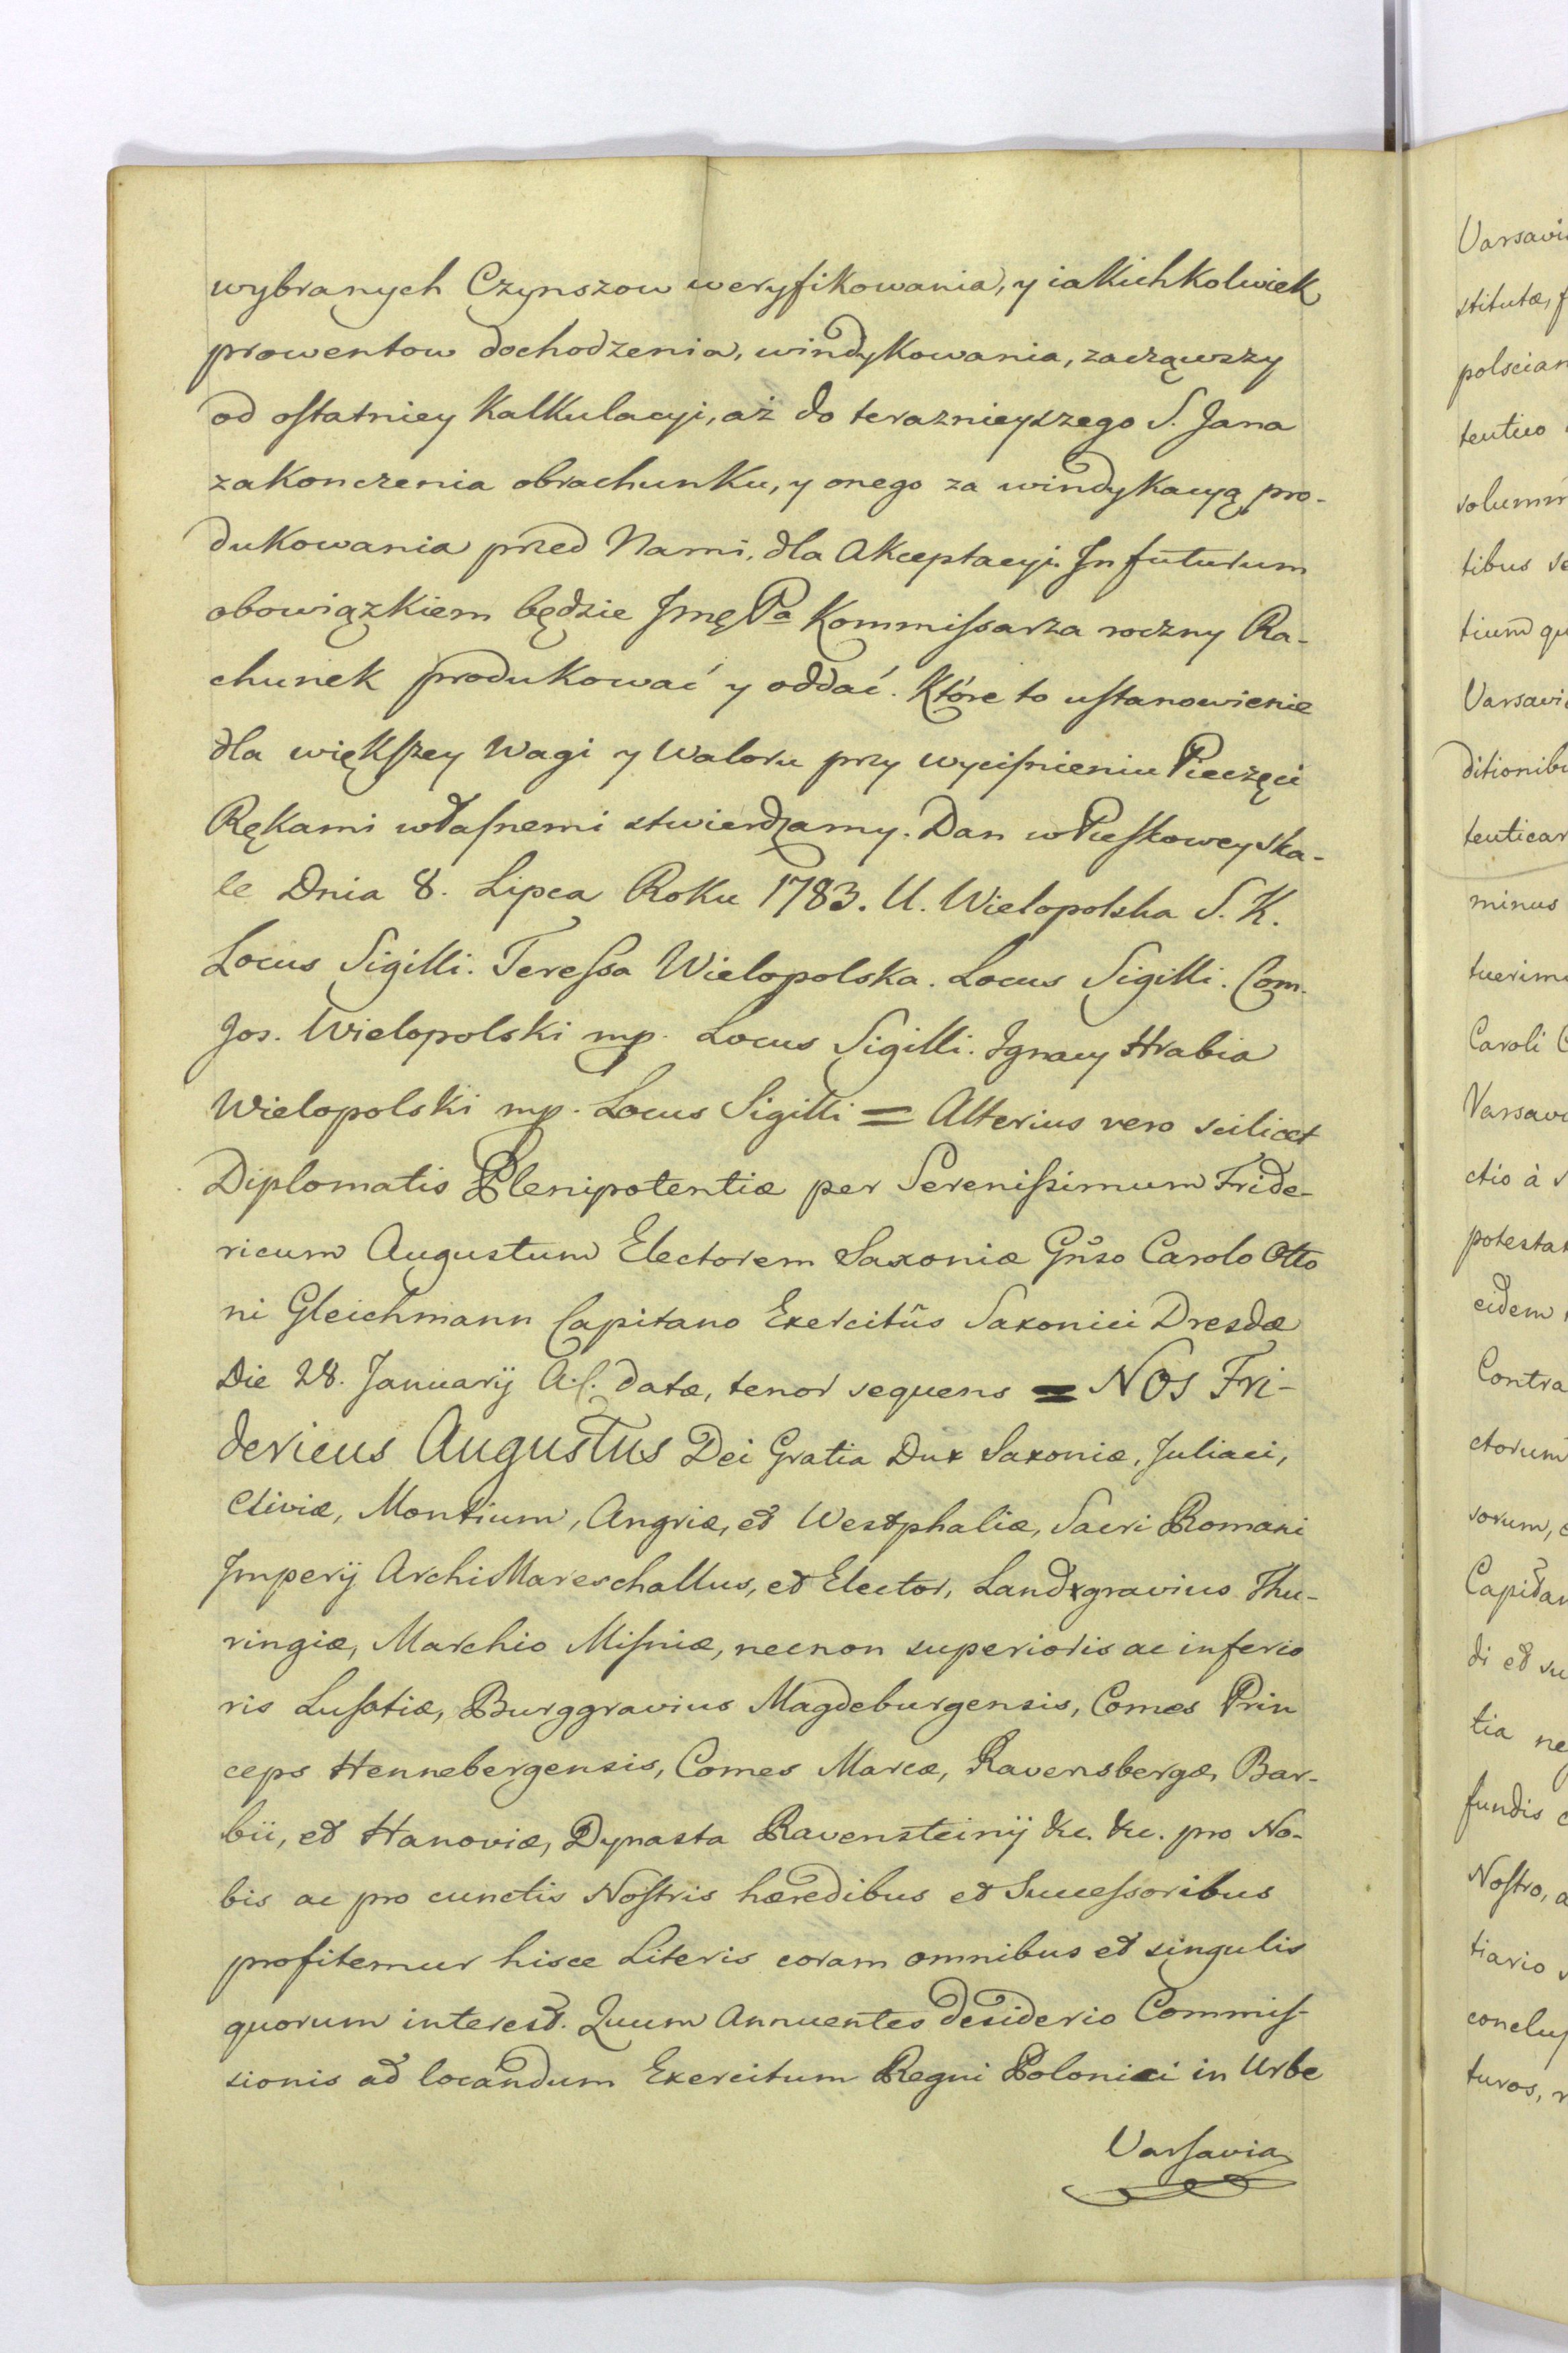 wybranych Czynszow weryfikowania, y iakichkolwiek
prowentow dochodzenia, windykowania, zacząwszy
od ostatniey Kalkulacyi, aż do teraznieyszego S. Jana
zakonczenia obrachunku, y onego za windykacyą pro-
dukowania przed Nami, dla Akceptacyi. In futurum
obowiązkiem będzie Jmę Pa Kommissarza roczny Ra-
chunek produkować y oddać. Które to ustanowienie
dla większey Wagi y Waloru przy wyciśnieniu Pieczęci
Rękami własnemi stwierdzamy. Dan w Pieskowey ska-
le Dnia 8. Lipca Roku 1783. U. Wielopolska S. K.
Locus Sigilli. Teressa Wielopolska. Locus Sigilli. Com.
Jos. Wielopolski mp. Locus Sigilli. Ignacy Hrabia
Wielopolski mp. Locus Sigilli = Alterius vero scilicet
Diplomatis Plenipotentiæ per Serenissimum Fride-
ricum Augustum Electorem Saxoniæ Gñso Carolo Otto
ni Gleichmann Capitano Exercitûs Saxonici Dresdæ
Die 28. Januarij A. c. datæ, tenor sequens = Nos Fri-
dericus Augustus Dei Gratia Dux Saxoniæ, Juliaci,
Cliviæ, Montium, Angriæ, et Westphaliæ, Sacri Romani
Imperij ArchiMareschallus, et Elector, Landgravius Thu-
ringiæ, Marchio Misniæ, necnon superioris ac inferio
ris Lusatiæ, Burggravius Magdeburgensis, Comes Prin
ceps Hennebergensis, Comes Marcæ, Ravensbergæ, Bar-
bii, et Hanoviæ, Dynasta Ravensteinij &c. &c. pro No-
bis ac pro cunctis Nostris hæredibus et Successoribus
profitemur hisce Literis coram omnibus et singulis
quorum interest. Quum Annuentes desiderio Commis-
sionis ad locandum Exercitum Regni Polonici in Urbe
Varsavia
Varsavi
stitutæ, f
polscian
tentico
solumm
tibus se
tium qu
Varsavi
ditionibu
tenticar
minus
tuerim
Caroli
Varsav
ctio à
potesta
eidem
Contra
ctorum
sorum,
Capitan
di et su
tia ne
fundis c
Nostro, a
tiario
conclus
turos,